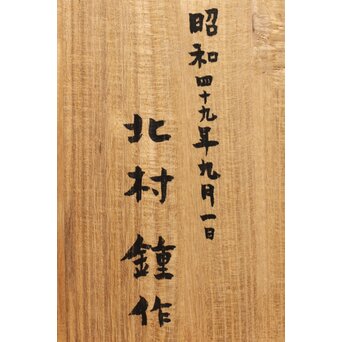 昭和四十九年九月一日
北村鍾作